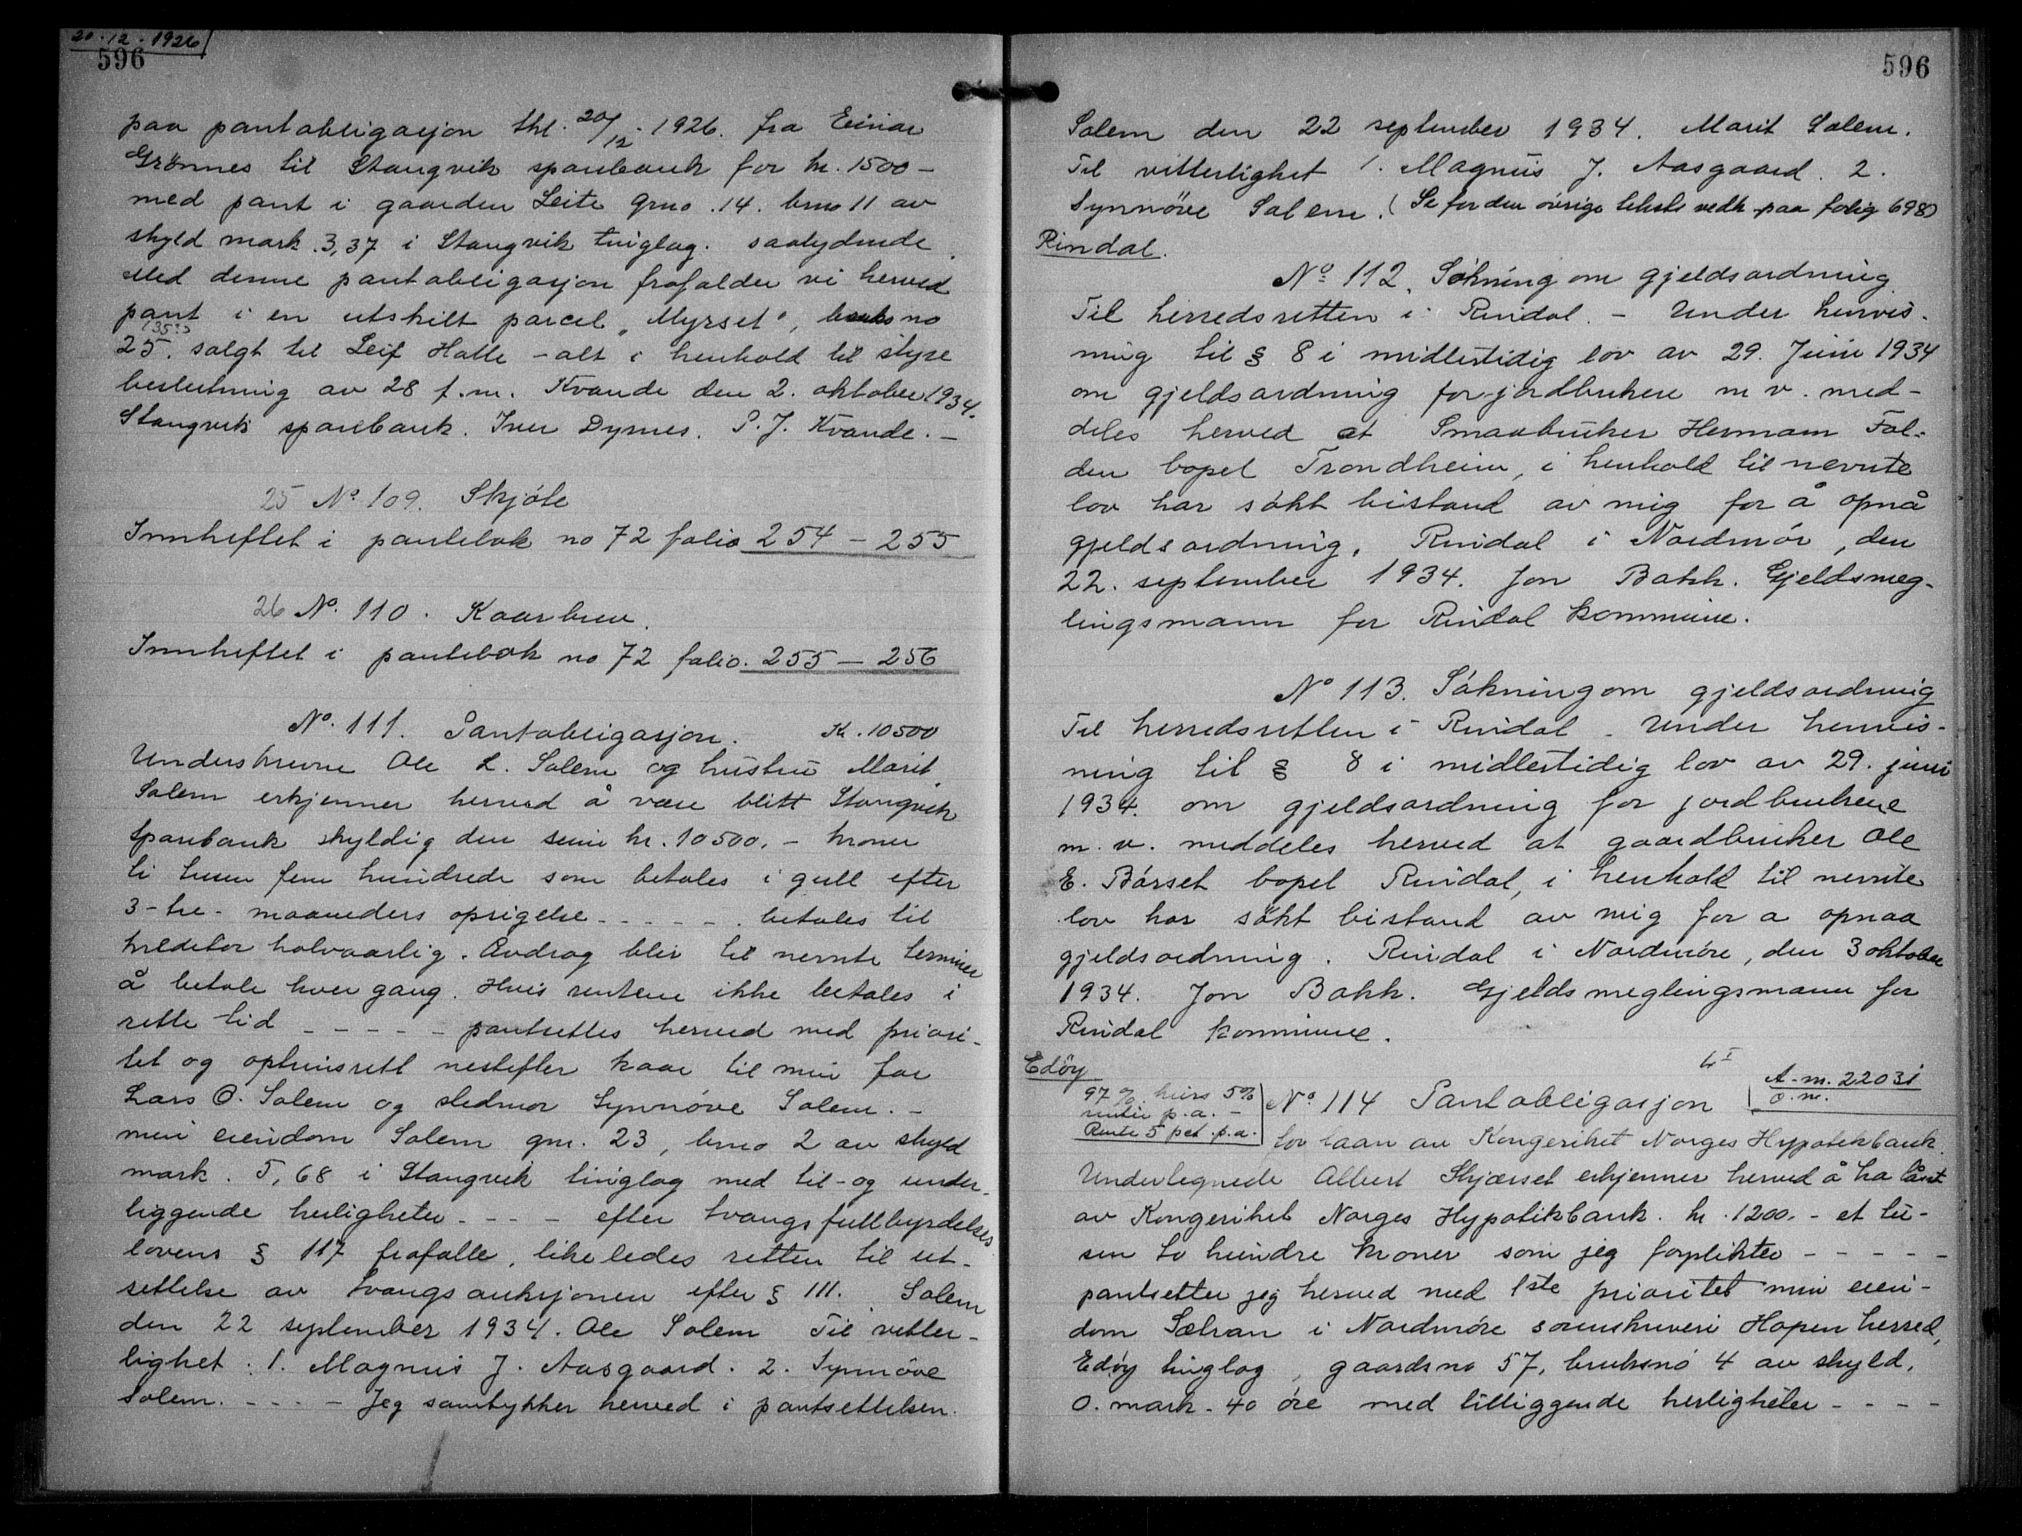 20.12.1926
596
paa pantobligasjon thl. 20/12. 1926. fra Einar
Grønnes til Stangvik sparebank for kr. 1500 -
med pant i gaarden Leite grno. 14. brno 11 av
skyld mark. 3,37 i Stangvik tinglag. saalydende
Med denne pantobligasjon frafalder vi herved
pant i en utskilt parcel "Myrset", bruksno
25. solgt til Leif Halle - alt i henhold til styre
beslutning av 28 f.m. Kvande den 2. oktober 1934.
Stangvik sparebank. Iver Dyrnes. P. J. Kvande. -
25 No. 109. Skjøte
Innheftet i pantebok no 72 folio 254 - 255
26 No. 110. Kaarbrev.
Innheftet i pantebok no 72 folio. 255 - 256
No. 111. Pantobligasjon. Kr. 10500
Underskrevne Ole L. Solem og hustru Marit
Solem erkjenner herved å være blitt Stangvik
Sparebank skyldig den sum kr. 10500. - kroner
ti tusen fem hundrede som betales i gull efter
3 - tre - maaneders opsigelse - - - - - . betales til
kreditor halvaarlig. Avdrag blir til nevnte terminer
å betale hver gang. Hvis rentene ikke betales i
rette tid - - - - - pantsettes herved med priori-
tet og optrinsrett nestefter kaar til min far
Lars O. Solem og stedmor Synnøve Solem. -
min eiendom Solem gnr. 23, brno 2 av skyld
mark. 5,68 i Stangvik tinglag med til- og under-
liggende herligheter - - - - efter tvangsfullbyrdelses
lovens § 117 frafalle, likeledes retten til ut-
settelse av tvangsauksjonen efter § 111. Solem
den 22 september 1934. Ole Solem Til vitter-
lighet: 1. Magnus J. Aasgaard. 2. Synnøve
Solem. - - - - Jeg samtykker herved i pantsettelsen.
596
Solem den 22 september 1934. Marit Solem.
Til vitterlighet 1. Magnus J. Aasgaard. 2.
Synnøve Solem. (Se for den øvrige tekst vedk paa folig 698)
Rindal.
No 112. Søkning om gjeldsordning
Til herredsretten i Rindal. - Under henvis-
ning til § 8 i midlertidig lov av 29. Juni 1934
om gjeldsordning for jordbrukere m v. med-
deles herved at Smaabruker Hermann Fol-
den bopel Trondheim, i henhold til nevnte
lov har søkt bistand av mig for å opnå
gjeldsordning. Rindal i Nordmør, den
22. september 1934. Jon Bakk. Gjeldsmeg-
lingsmann for Rindal kommune.
No 113. Søkning om gjeldsordning
Til herredsretten i Rindal. Under henvis-
ning til § 8 i midlertidig lov av 29. juni
1934. om gjeldsordning for jordbrukere
m. v. meddeles herved at gaardbruker Ole
E. Børset bopel Rindal, i henhold til nevnte
lov har søkt bistand av mig for a opnaa
gjeldsordning. Rindal i Nordmøre, den 3 oktober
1934. Jon Bakk. Gjeldsmeglingsmann for
Rindal kommune.
Edøy
97 % kurs 5%
rente p.a. -
Rente 5 pct p.a.
No 114 Pantobligasjon
A. m. 22031
O. m.
for laan av Kongeriket Norges Hypotekbank.
Undertegnede Albert Skjærset erkjenner herved å ha lånt
av Kongeriket Norges Hypotekbank. kr. 1200. - et tu-
sen to hundre kroner som jeg forplikter - - - - -
pantsetter jeg herved med 1ste prioritet min eien-
dom Sætran i Nordmøre sorenskriveri Hopen herred,
Edøy tinglag, gaardsno 57, bruksno 4 av skyld.
0. mark - 40 øre med tilliggende herligheter - - - -